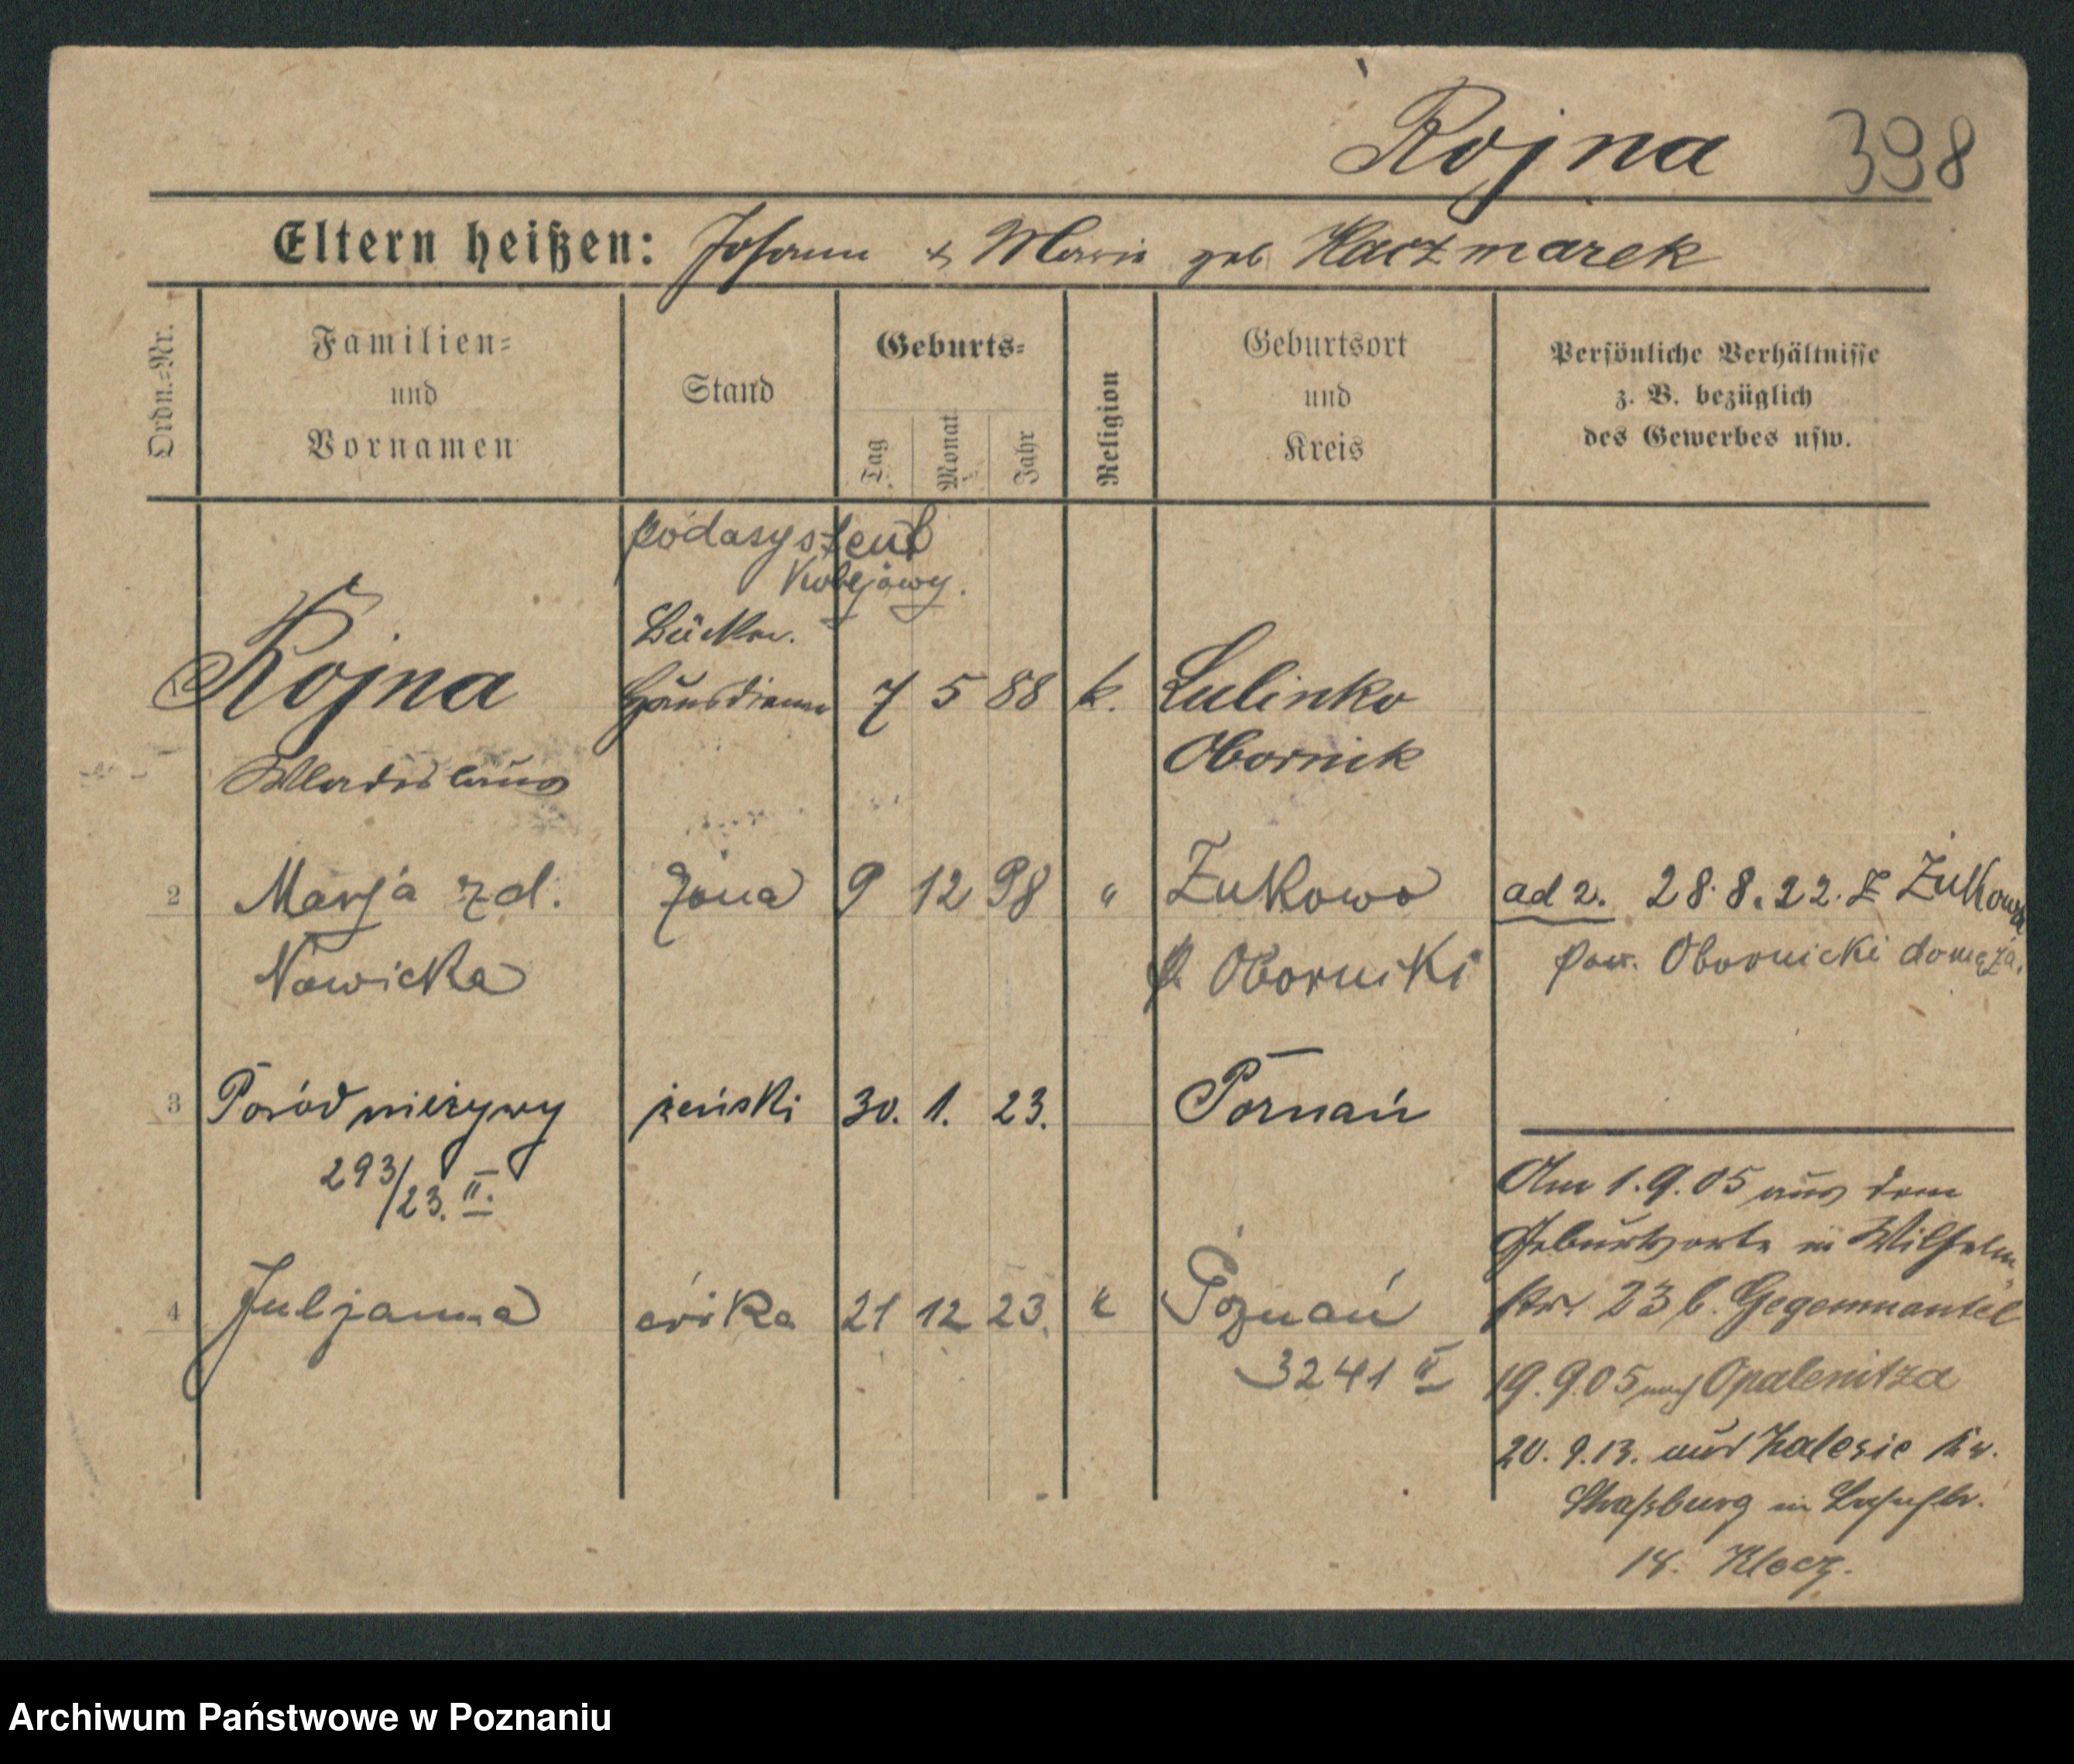 Rojna 398
Eltern heißen: Johann & Marie geb Kaczmarek
Ordn.=Nr.
Familien=
und
Vornamen
Stand
Geburts=
Tag
Monat
Jahr
Religion
Geburtsort
und
Kreis
Persönliche Verhältnisse
z. B. bezüglich
des Gewerbes usw.
podasystent
Kolejowy.
Rojna
Wladislaus
Hausdiener 7 5 88 k.
Lulinko
Obornik
2 Marja zd. żona 9 12 98 " Żukowo
Nowicka p. Oborniki
ad 2. 28.8.22. z Żukowa
pow. Obornicki do męża.
3 Poród nieżywy żeński 30. 1. 23. Poznań
293/23. II.
4 Juljanna córka 21 12 23. k Poznań
3241 II
Am 1.9.05 aus dem
Geburtsorte in Wilhelm
str. 23 b. Gegenmantel
19.9.05 nach Opalenitza
20.9.13. aus Zalesie Kr.
Straßburg in
18. Klocz.
Archiwum Państwowe w Poznaniu